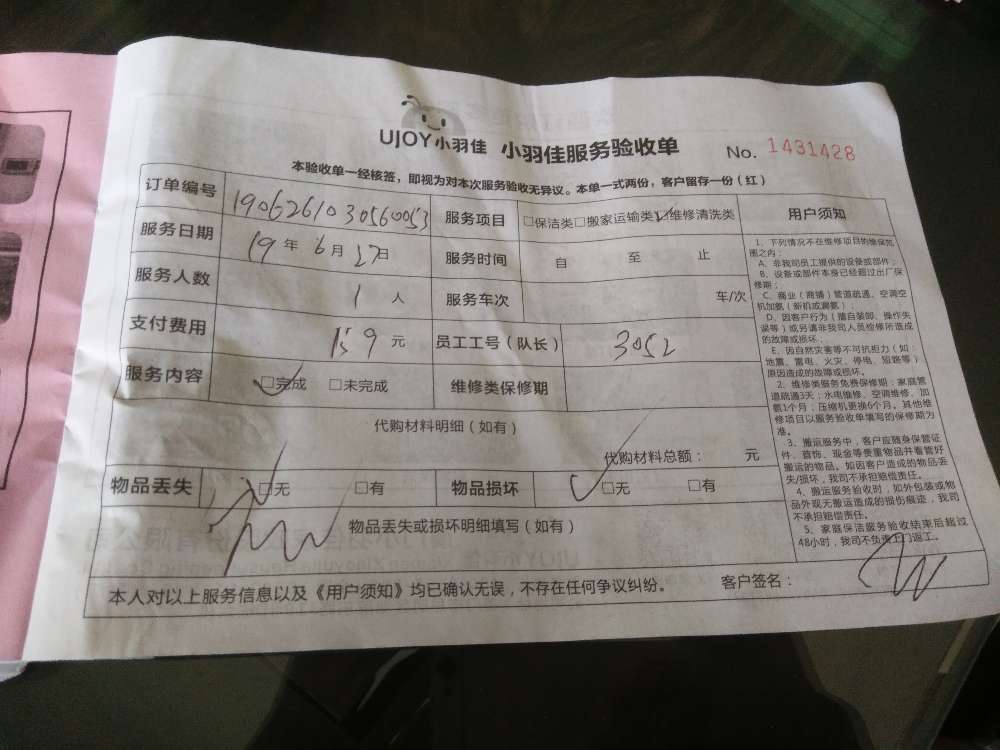 UJOY小羽佳 小羽佳服务验收单 No. 1431428
本验收单一经核签，即视为对本次服务验收无异议。本单一式两份，客户留存一份（红）
订单编号 1906261030560053 服务项目 □保洁类□搬家运输类□维修清洗类
服务日期 19年6月27日 服务时间 自 至 止
服务人数 1人 服务车次 车/次
支付费用 159元 员工工号（队长） 3052
服务内容 □完成 □未完成 维修类保修期
代购材料明细（如有）
代购材料总额： 元
物品丢失 □无 □有 物品损坏 □无 □有
物品丢失或损坏明细填写（如有）
用户须知
1、下列情况不在维修项目的维保范
围之内：
A、非我司员工提供的设备或部件；
B、设备或部件本身已经超过出厂保
修期；
C、商业（商铺）管道疏通、空调空
机加氨（新机或漏氨）；
D、因客户行为（擅自装卸、操作失
误等）或另请非我司人员检修所造成
的故障或损坏；
E、因自然灾害等不可抗拒力（如：
地震、雷电、火灾、停电、短路等）
原因造成的故障或损坏。
2、维修类服务免费保修期：家庭管
道疏通3天；水电维修、空调维修、加
氨1个月；压缩机更换6个月。其他维
修项目以服务验收单填写的保修期为
准。
3、搬运服务中，客户应随身保管证
件、首饰、现金等贵重物品并看管好
搬运的物品。如因客户造成的物品丢
失/损坏，我司不承担赔偿责任。
4、搬运服务验收时，如外包装或物
品外观无搬运造成的损伤痕迹，我司
不承担赔偿责任。
5、家庭保洁服务验收结束后超过
48小时，我司不负责上门返工。
本人对以上服务信息以及《用户须知》均已确认无误，不存在任何争议纠纷。 客户签名：